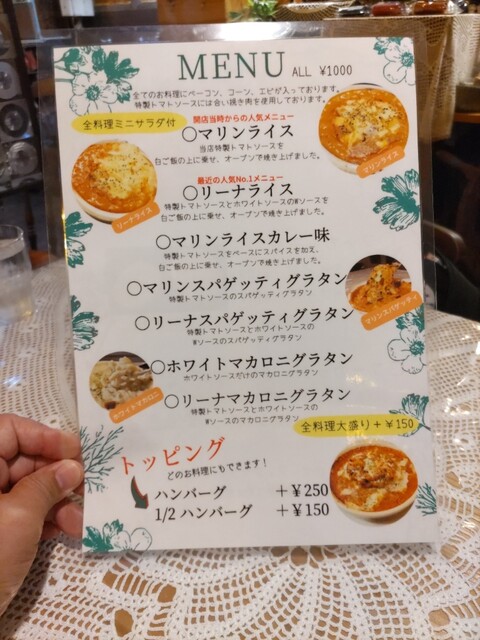 MENU ALL ¥1000
全てのお料理にベーコン、コーン、エビが入っております。
特製トマトソースには合い挽き肉を使用しております。
全料理ミニサラダ付
開店当時からの人気メニュー
○マリンライス
当店特製トマトソースを
白ご飯の上に乗せ、オーブンで焼き上げました。
マリンライス
リーナライス
最近の人気No.1メニュー
○リーナライス
特製トマトソースとホワイトソースのWソースを
白ご飯の上に乗せ、オーブンで焼き上げました。
○マリンライスカレー味
特製トマトソースをベースにスパイスを加え、
白ご飯の上に乗せ、オーブンで焼き上げました。
○マリンスパゲッティグラタン
特製トマトソースのスパゲッティグラタン
マリンスパゲッティ
○リーナスパゲッティグラタン
特製トマトソースとホワイトソースの
Wソースのスパゲッティグラタン
○ホワイトマカロニグラタン
ホワイトソースだけのマカロニグラタン
ホワイトマカロニ
○リーナマカロニグラタン
特製トマトソースとホワイトソースの
Wソースのマカロニグラタン
全料理大盛り+¥150
トッピング
どのお料理にもできます！
ハンバーグ +¥250
1/2 ハンバーグ +¥150